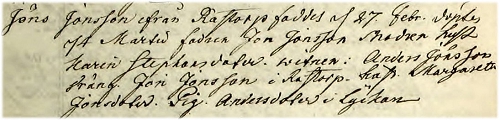 Jöns Jonsson ifrån Rastorp föddes d 27 Febr. döptes
d 4 Martii fadren Jon Jonsson Modren hust
Karin Stephansdoter. witnen: Anders Jönsson
dräng. Jon Jonsson i Rastorp. hust. Margareta
Jonsdoter. Pig. Andersdoter i Lyckan